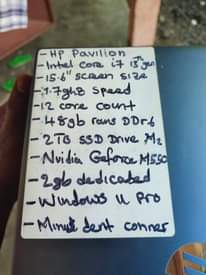 - HP Pavilion
- Intel Core i7 13th gen
- 15.6" screen size
- 1.7ghz speed
- 12 core count
- 48gb rams DDr6
- 2TB SSD Drive M2
- Nvidia Geforce M550
- 2gb dedicated
- Windows 11 pro
- Minute dent conner